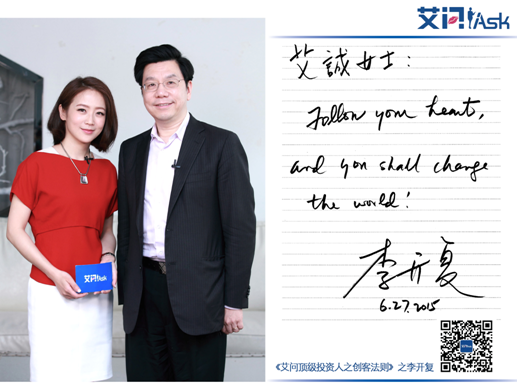 艾问!iAsk
艾誠女士:
Follow your heart,
and you shall change
the world!
李开复
6.27.2015
艾问!iAsk
《艾问顶级投资人之创客法则》之李开复